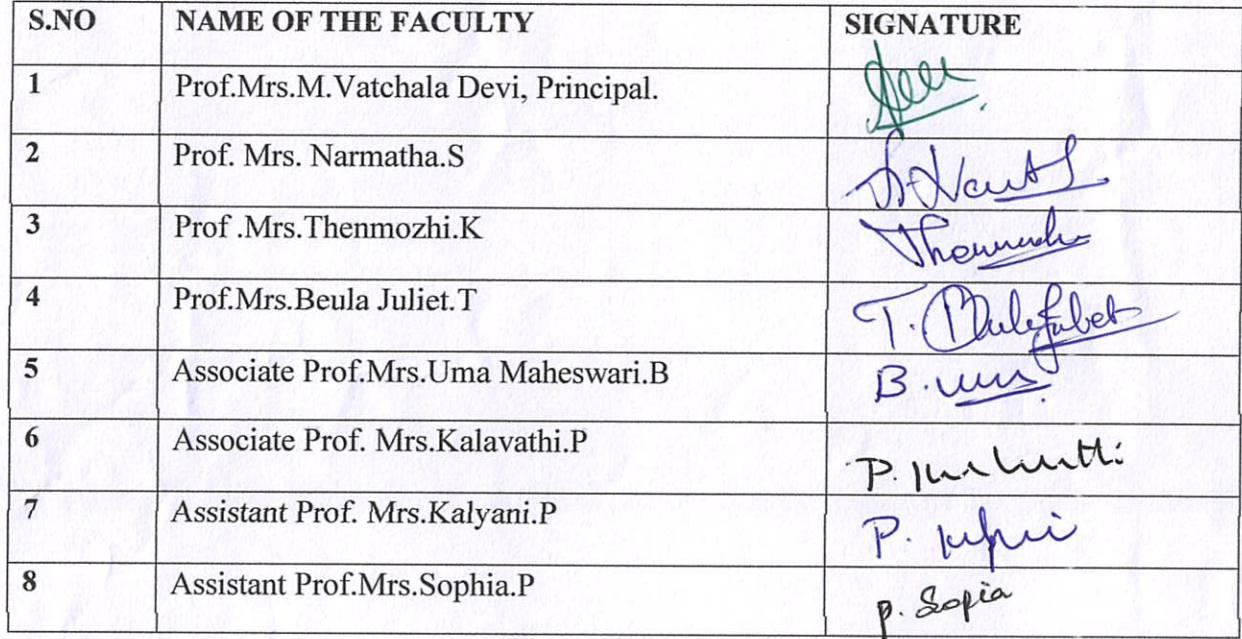 S.NO NAME OF THE FACULTY SIGNATURE
1 Prof.Mrs.M.Vatchala Devi, Principal.
2 Prof. Mrs. Narmatha.S
3 Prof .Mrs.Thenmozhi.K
4 Prof.Mrs.Beula Juliet.T T.
5 Associate Prof.Mrs.Uma Maheswari.B B.
6 Associate Prof. Mrs.Kalavathi.P P.
7 Assistant Prof. Mrs.Kalyani.P P.
8 Assistant Prof.Mrs.Sophia.P p. Sopia